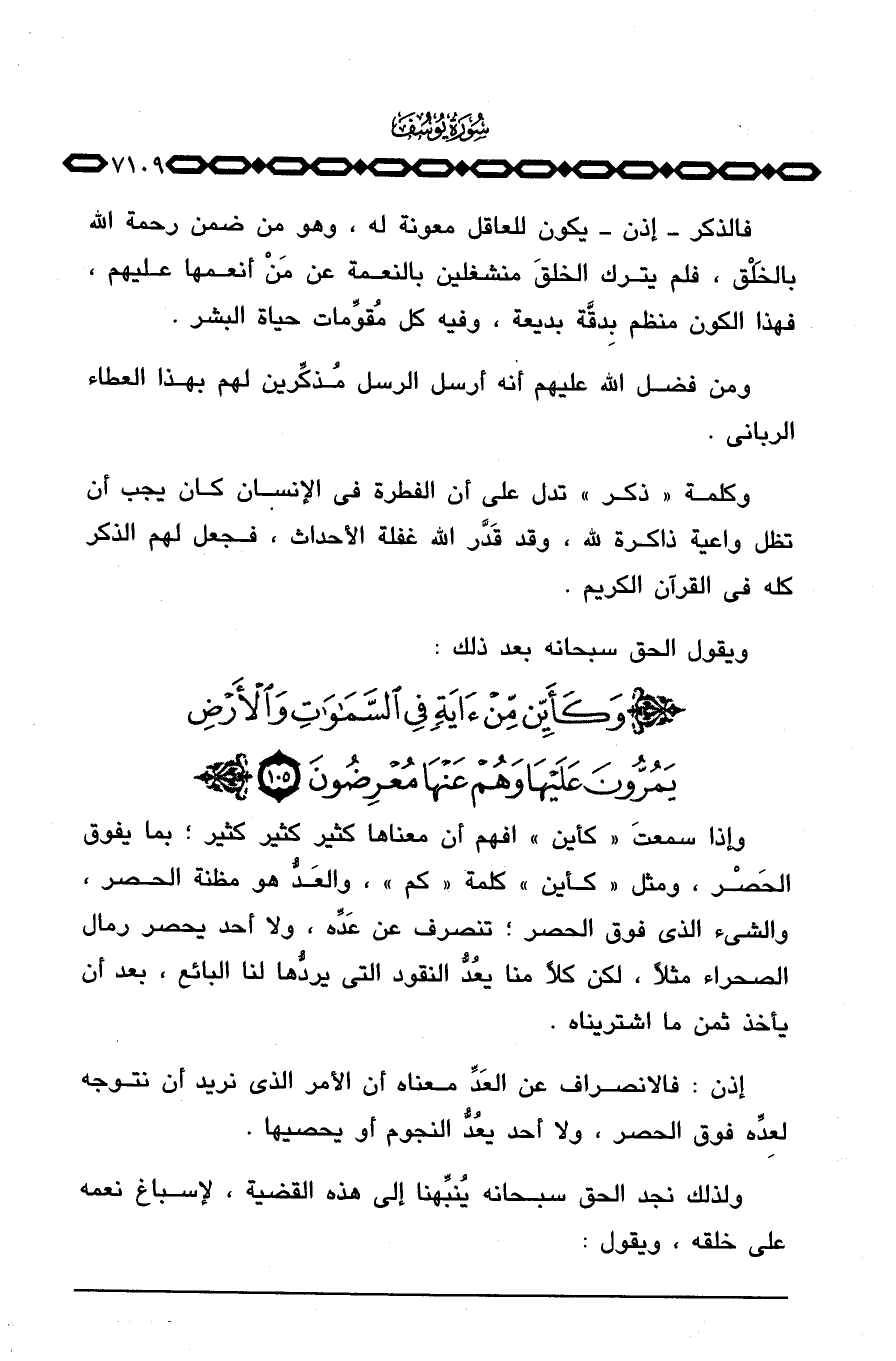 سُورَةُ يُوسُفَ
٧١٠٩
فالذكر ـ إذن ـ يكون للعاقل معونة له ، وهو من ضمن رحمة الله
بالخَلْق ، فلم يتـرك الخلقَ منشغلين بالنعـمة عن مَنْ أنعـمها عـليهم ،
فهذا الكون منظم بِدقَّة بديعة ، وفيه كل مُقوِّمات حياة البشر .
ومن فضـل الله عليهم أنه أرسل الرسل مُـذكِّرين لهم بهـذا العطاء
الربانى .
وكلمـة « ذكـر » تدل على أن الفطرة فى الإنسـان كـان يجب أن
تظل واعية ذاكـرة لله ، وقد قَدَّر الله غفلة الأحداث ، فـجعل لهم الذكر
كله فى القرآن الكريم .
ويقول الحق سبحانه بعد ذلك :
وَكَأَيِّن مِّنْ ءَايَةٍ فِي ٱلسَّمَٰوَٰتِ وَٱلْأَرْضِ
يَمُرُّونَ عَلَيْهَا وَهُمْ عَنْهَا مُعْرِضُونَ ١٠٥
وإذا سمعتَ « كأين » افهم أن معناها كثير كثير كثير ؛ بما يفوق
الحَصْـر ، ومثل « كـأين » كلمة « كم » ، والعَـدُّ هو مظنة الحـصر ،
والشىء الذى فوق الحصر ؛ تنصرف عن عَدِّه ، ولا أحد يحصر رمال
الصحراء مثلاً ، لكن كلاً منا يعُدُّ النقود التى يردُّها لنا البائع ، بعد أن
يأخذ ثمن ما اشتريناه .
إذن : فالانصـراف عن العَدِّ مـعناه أن الأمر الذى نريد أن نتـوجه
لعدِّه فوق الحصر ، ولا أحد يعُدُّ النجوم أو يحصيها .
ولذلك نجد الحق سبـحانه يُنبِّهنا إلى هذه القضية ، لإسـباغ نعمه
على خلقه ، ويقول :